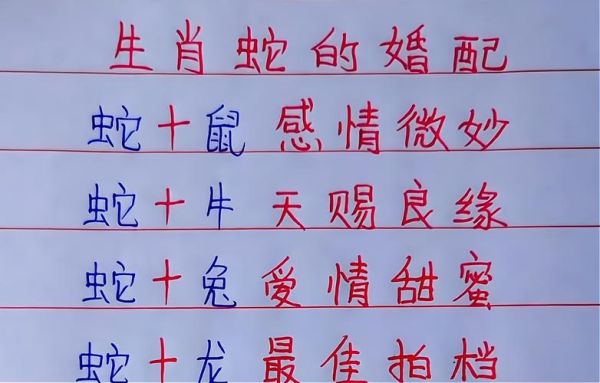 生肖蛇的婚配
蛇+鼠 感情微妙
蛇+牛 天赐良缘
蛇+兔 爱情甜蜜
蛇+龙 最佳拍档